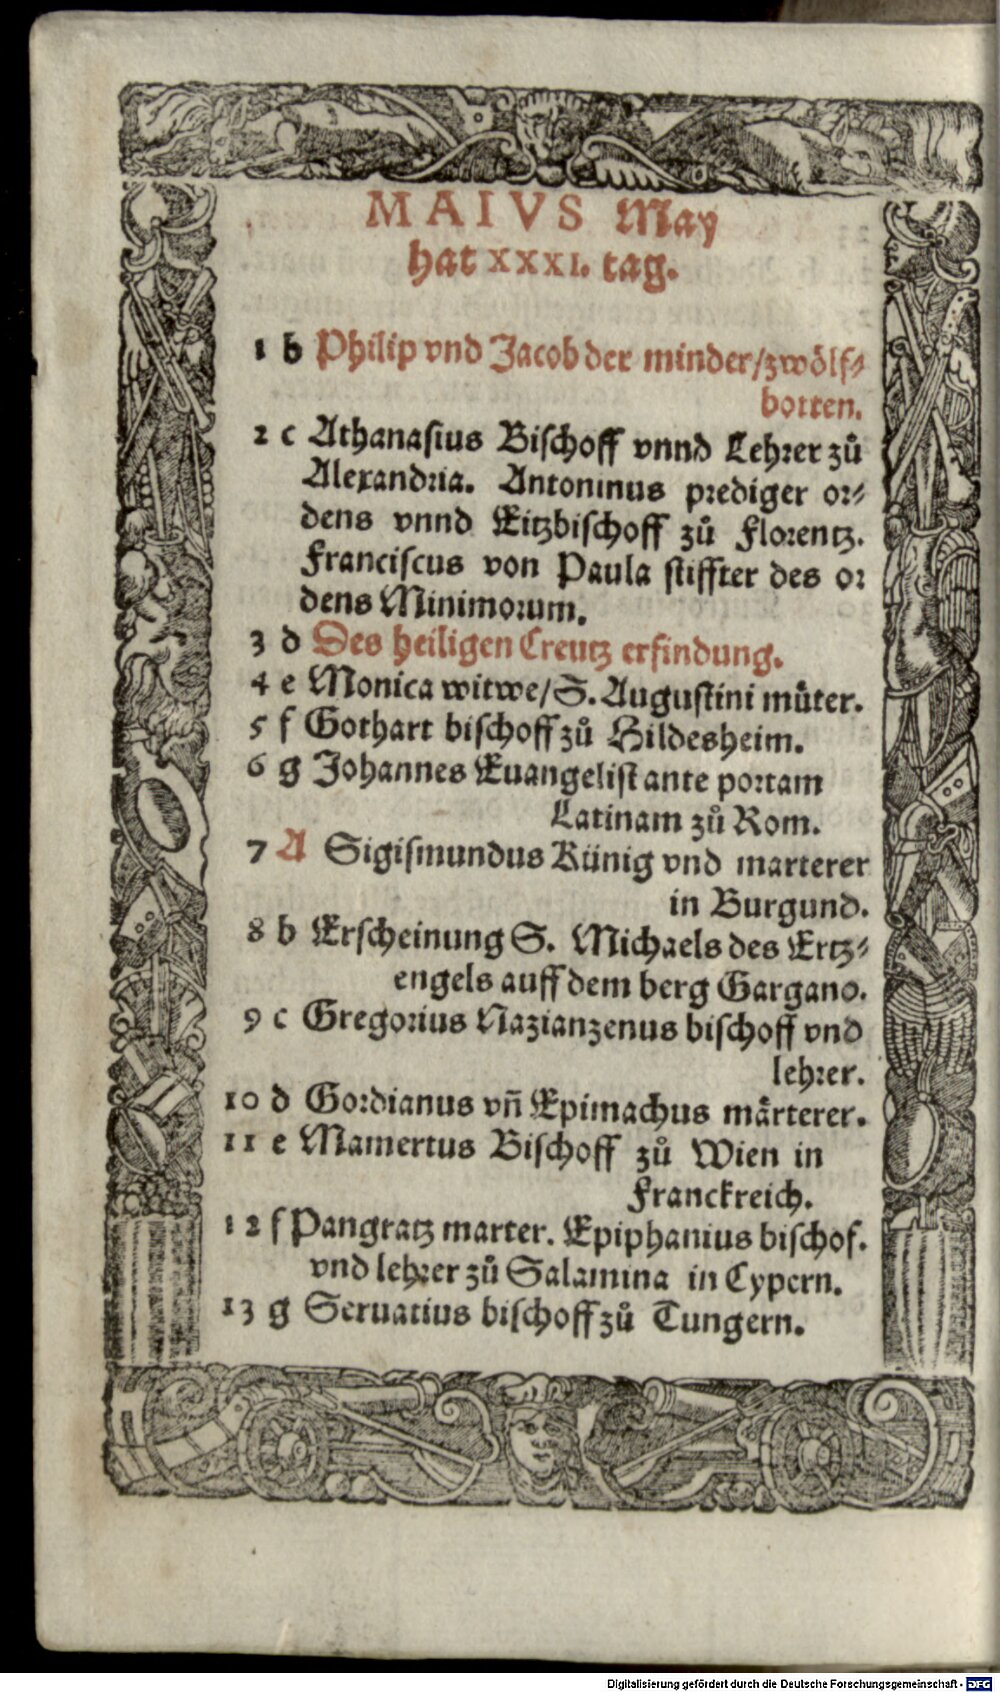 MAIVS May
hat XXXI. tag.
1 b Philip vnd Jacob der minder/zwölf⸗
botten.
2 c Athanasius Bischoff vnnd Lehrer zů
Alexandria. Antoninus prediger or⸗
dens vnnd Eitzbischoff zů Florentz.
Franciscus von Paula stiffter des or
dens Minimorum.
3 d Des heiligen Creutz erfindung.
4 e Monica witwe/S. Augustini můter.
5 f Gothart bischoff zů Hildesheim.
6 g Johannes Euangelist ante portam
Latinam zů Rom.
7 A Sigismundus Künig vnd marterer
in Burgund.
8 b Erscheinung S. Michaels des Ertz⸗
engels auff dem berg Gargano.
9 c Gregorius Nazianzenus bischoff vnd
lehrer.
10 d Gordianus vñ Epimachus märterer.
11 e Mamertus Bischoff zů Wien in
Franckreich.
12 f Pangratz marter. Epiphanius bischof.
vnd lehrer zů Salamina in Cypern.
13 g Seruatius bischoff zů Tungern.
Digitalisierung gefördert durch die Deutsche Forschungsgemeinschaft - DFG